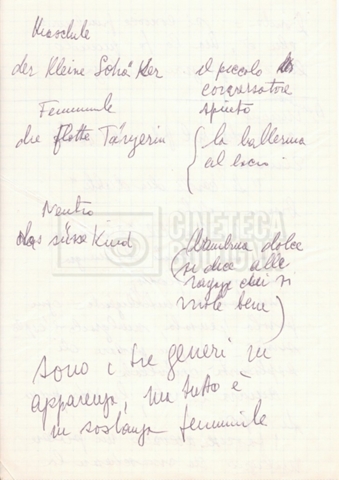 Maschile
der kleine Schäker il piccolo
conversatore
spinto
Femminile
die flotte Tänzerin la ballerina
Neutro
das süsse Kind bambina dolce
(si dice alle
ragazze cui si
vuole bene)
CINETECA
sono i tre generi in
apparenza, ma tutto è
in sostanza femminile